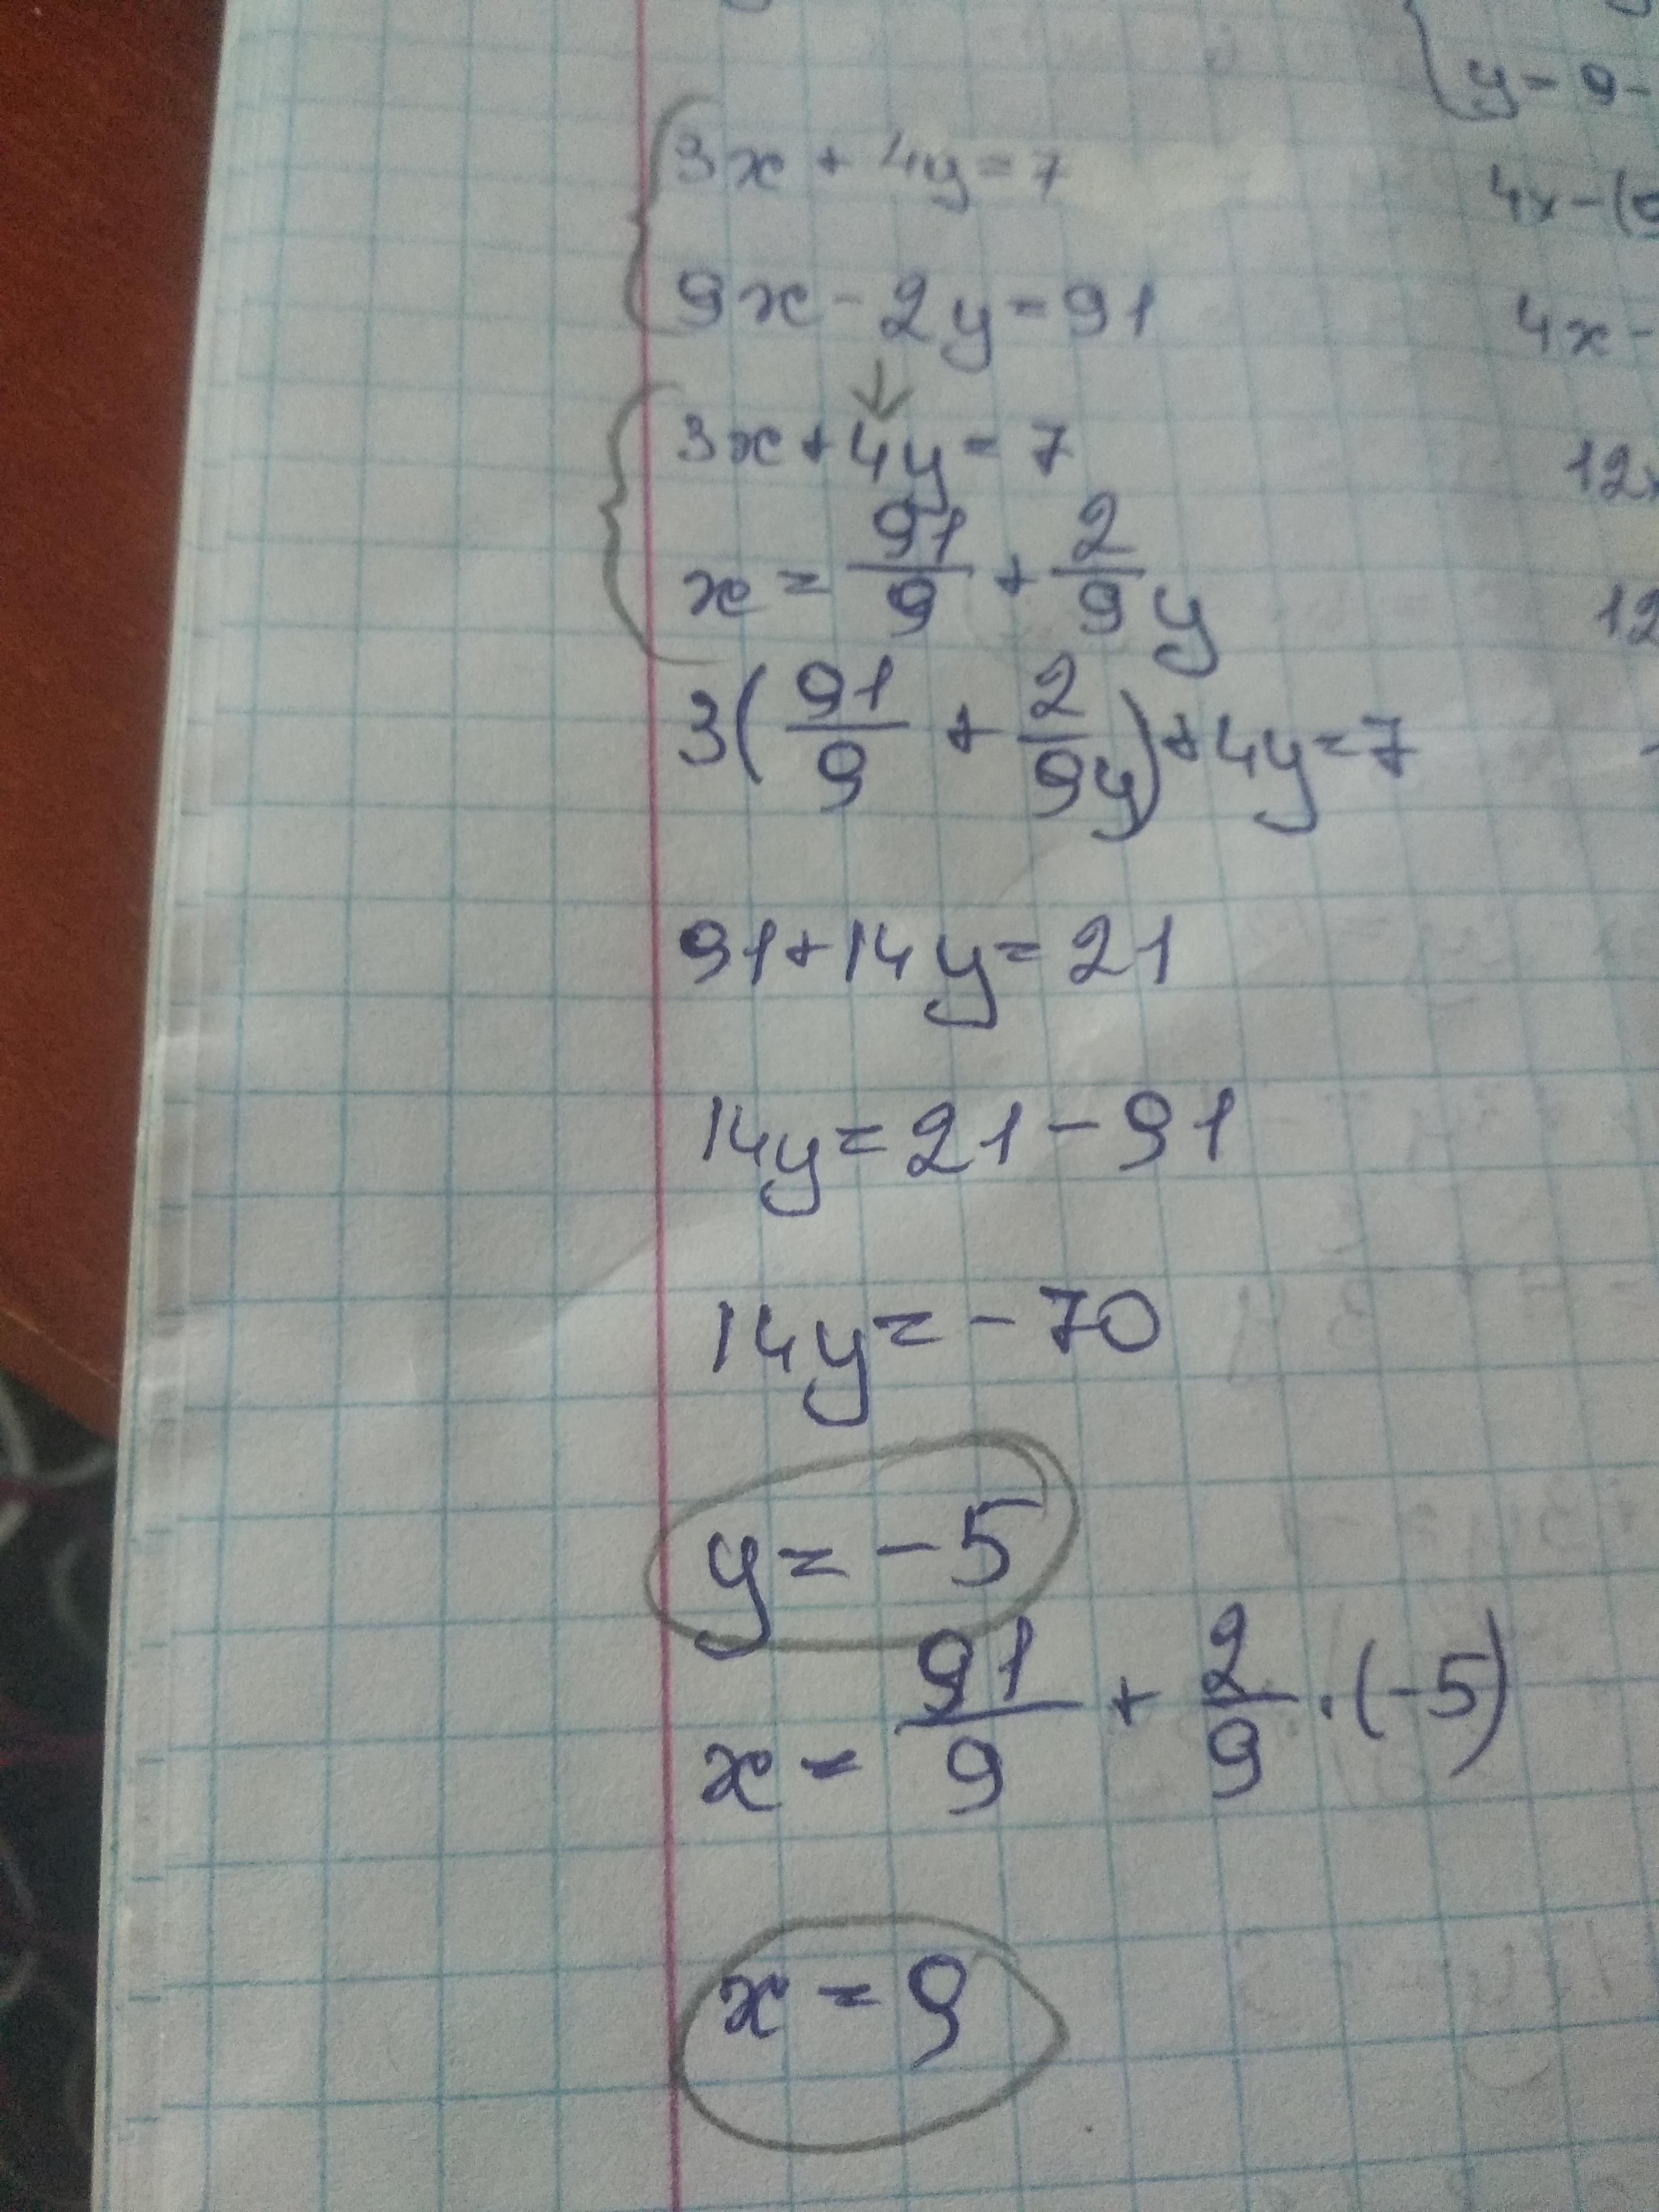 3x + 4y = 7
9x - 2y = 91
↓
3x + 4y = 7
x = 91/9 + 2/9 y
3(91/9 + 2/9y) + 4y = 7
91 + 14y = 21
14y = 21 - 91
14y = - 70
y = - 5
x = 91/9 + 2/9 · (-5)
x = 9
y = 9 -
4x - (9
4x -
12x
12